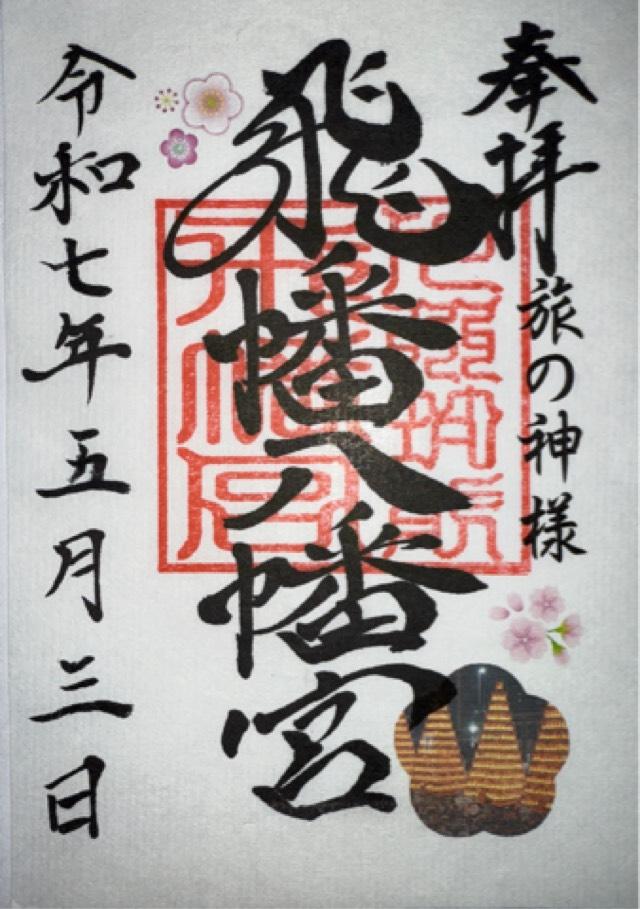 奉拝
旅の神様
飛幡八幡宮
令和七年五月三日